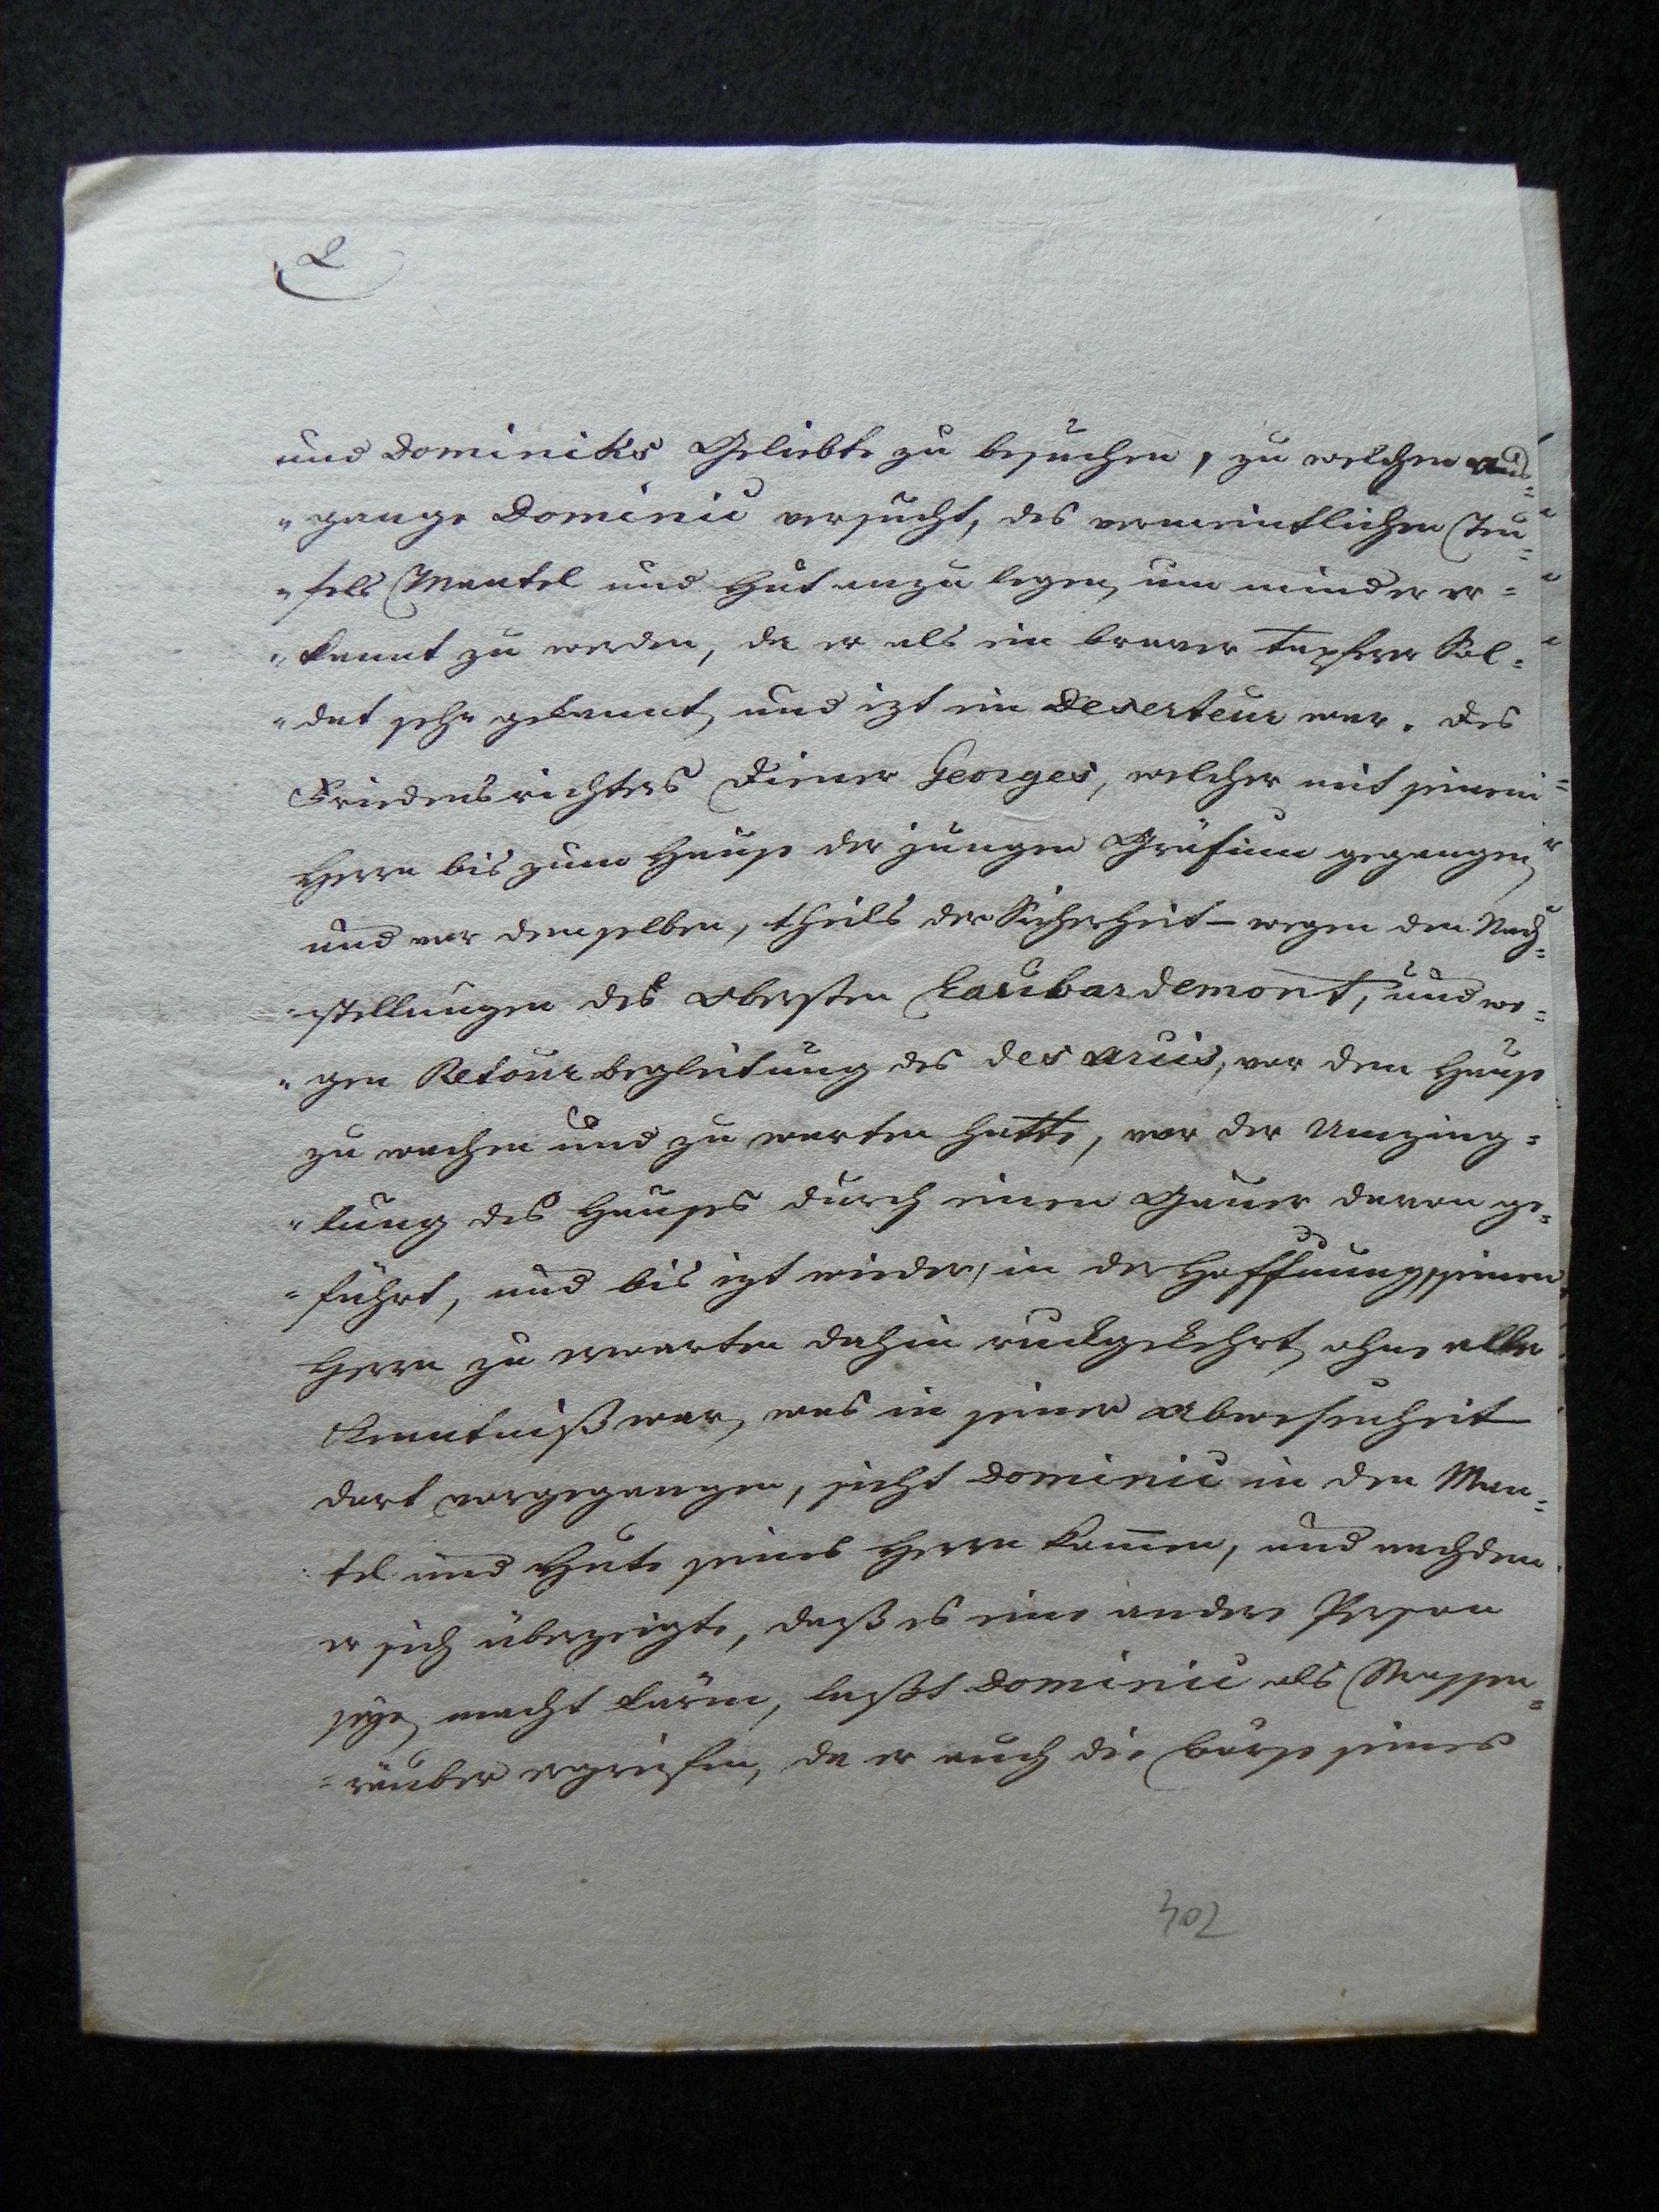 2
und Dominiks Geliebte zu besuchen, zu welchen Aus=
"gange Dominic versucht, des vermeintlichen Teu=
"fels Mantel und Hut anzulegen, um minder er=
"kannt zu werden, da er als ein braver tapferer Sol=
"dat sehr gekannt, und izt ein Deserteur war. Des
Friedensrichters Diener Georges, welcher mit seinem
Herrn bis zum Hause der jungen Gräfinn gegangen,
und vor demselben, theils der Sicherheit – wegen den Nach=
"stellungen des Obersten Laubardemont, und we=
"gen Retourbegleitung des des arcis, vor dem Hause
zu wachen und zu warten hatte, vor der Umzing=
"lung des Hauses durch einen Gauner davon ge=
"führt, und bis izt wieder, in der Hoffnung seinen
Herrn zu erwarten dahin ruckgekehrt, ohne alle
Kenntniß war, was in seiner Abwesenheit
dort vorgegangen, sieht Dominic in den Man=
tel und Hute seines Herrn kommen, und nachdem
er sich überzeigte, daß es eine andere Person
seye, macht Lärm, laßt Dominic als Strassen=
=räuber ergreifen, da er auch die Börse seines
302